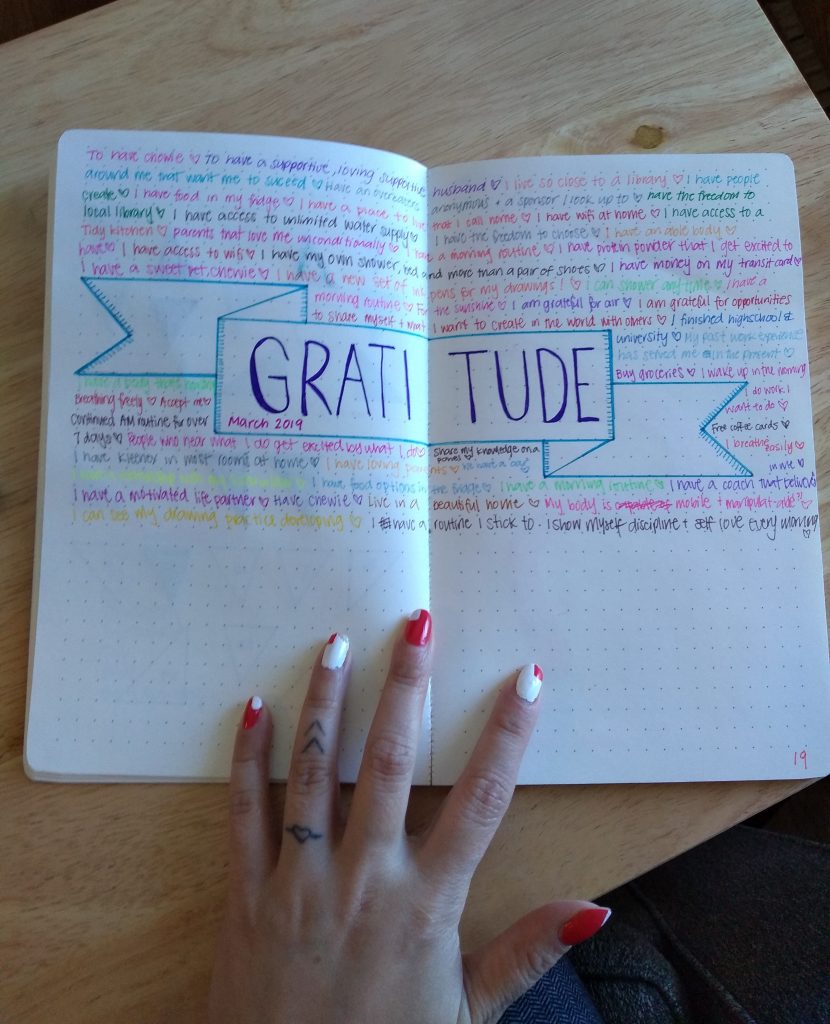 To have chewie ♡ To have a supportive, loving supportive husband ♡ I live so close to a library ♡ I have people
around me that want me to succeed ♡ Have an overeaters anonymous + a sponsor I look up to ♡ have the freedom to
create ♡ I have food in my fridge ♡ I have a place to live that I call home ♡ I have wifi at home ♡ I have access to a
local library ♡ I have access to unlimited water supply ♡ I have the freedom to choose ♡ I have an able body ♡
Tidy kitchen ♡ parents that love me unconditionally ♡ I have a morning routine ♡ I have protein powder that I get excited to
have ♡ I have access to wifi ♡ I have my own shower, bed, and more than a pair of shoes ♡ I have money on my transit card ♡
I have a sweet pet, chewie ♡ I have a new set of ink pens for my drawings ♡ I can shower any time ♡ I have a
morning routine ♡ For the sunshine ♡ I am grateful for air ♡ I am grateful for opportunities
to share myself + what I want to create in the world with others ♡ I finished highschool &
university ♡ My past work experience
has served me in the present ♡
Buy groceries ♡ I wake up in the morning
GRATITUDE
March 2019
I have a body that
Breathing freely ♡ Accept me ♡ I do work I
Continued AM routine for over want to do ♡
Free coffee cards ♡
7 days ♡ People who hear what I do get excited by what I do ♡ share my knowledge on a
panel ♡ I breathe easily ♡
I have kleenex in most rooms at home ♡ I have loving parents ♡ We have a car
I have food options in the fridge ♡ I have a morning routine ♡ I have a coach that believes
in me ♡
I have a motivated life partner ♡ Have chewie ♡ Live in a beautiful home ♡ My body is mobile + manipulatable?! ♡
I can see my drawing practice developing ♡ I have a routine I stick to. I show myself discipline + self love every morning ♡
19